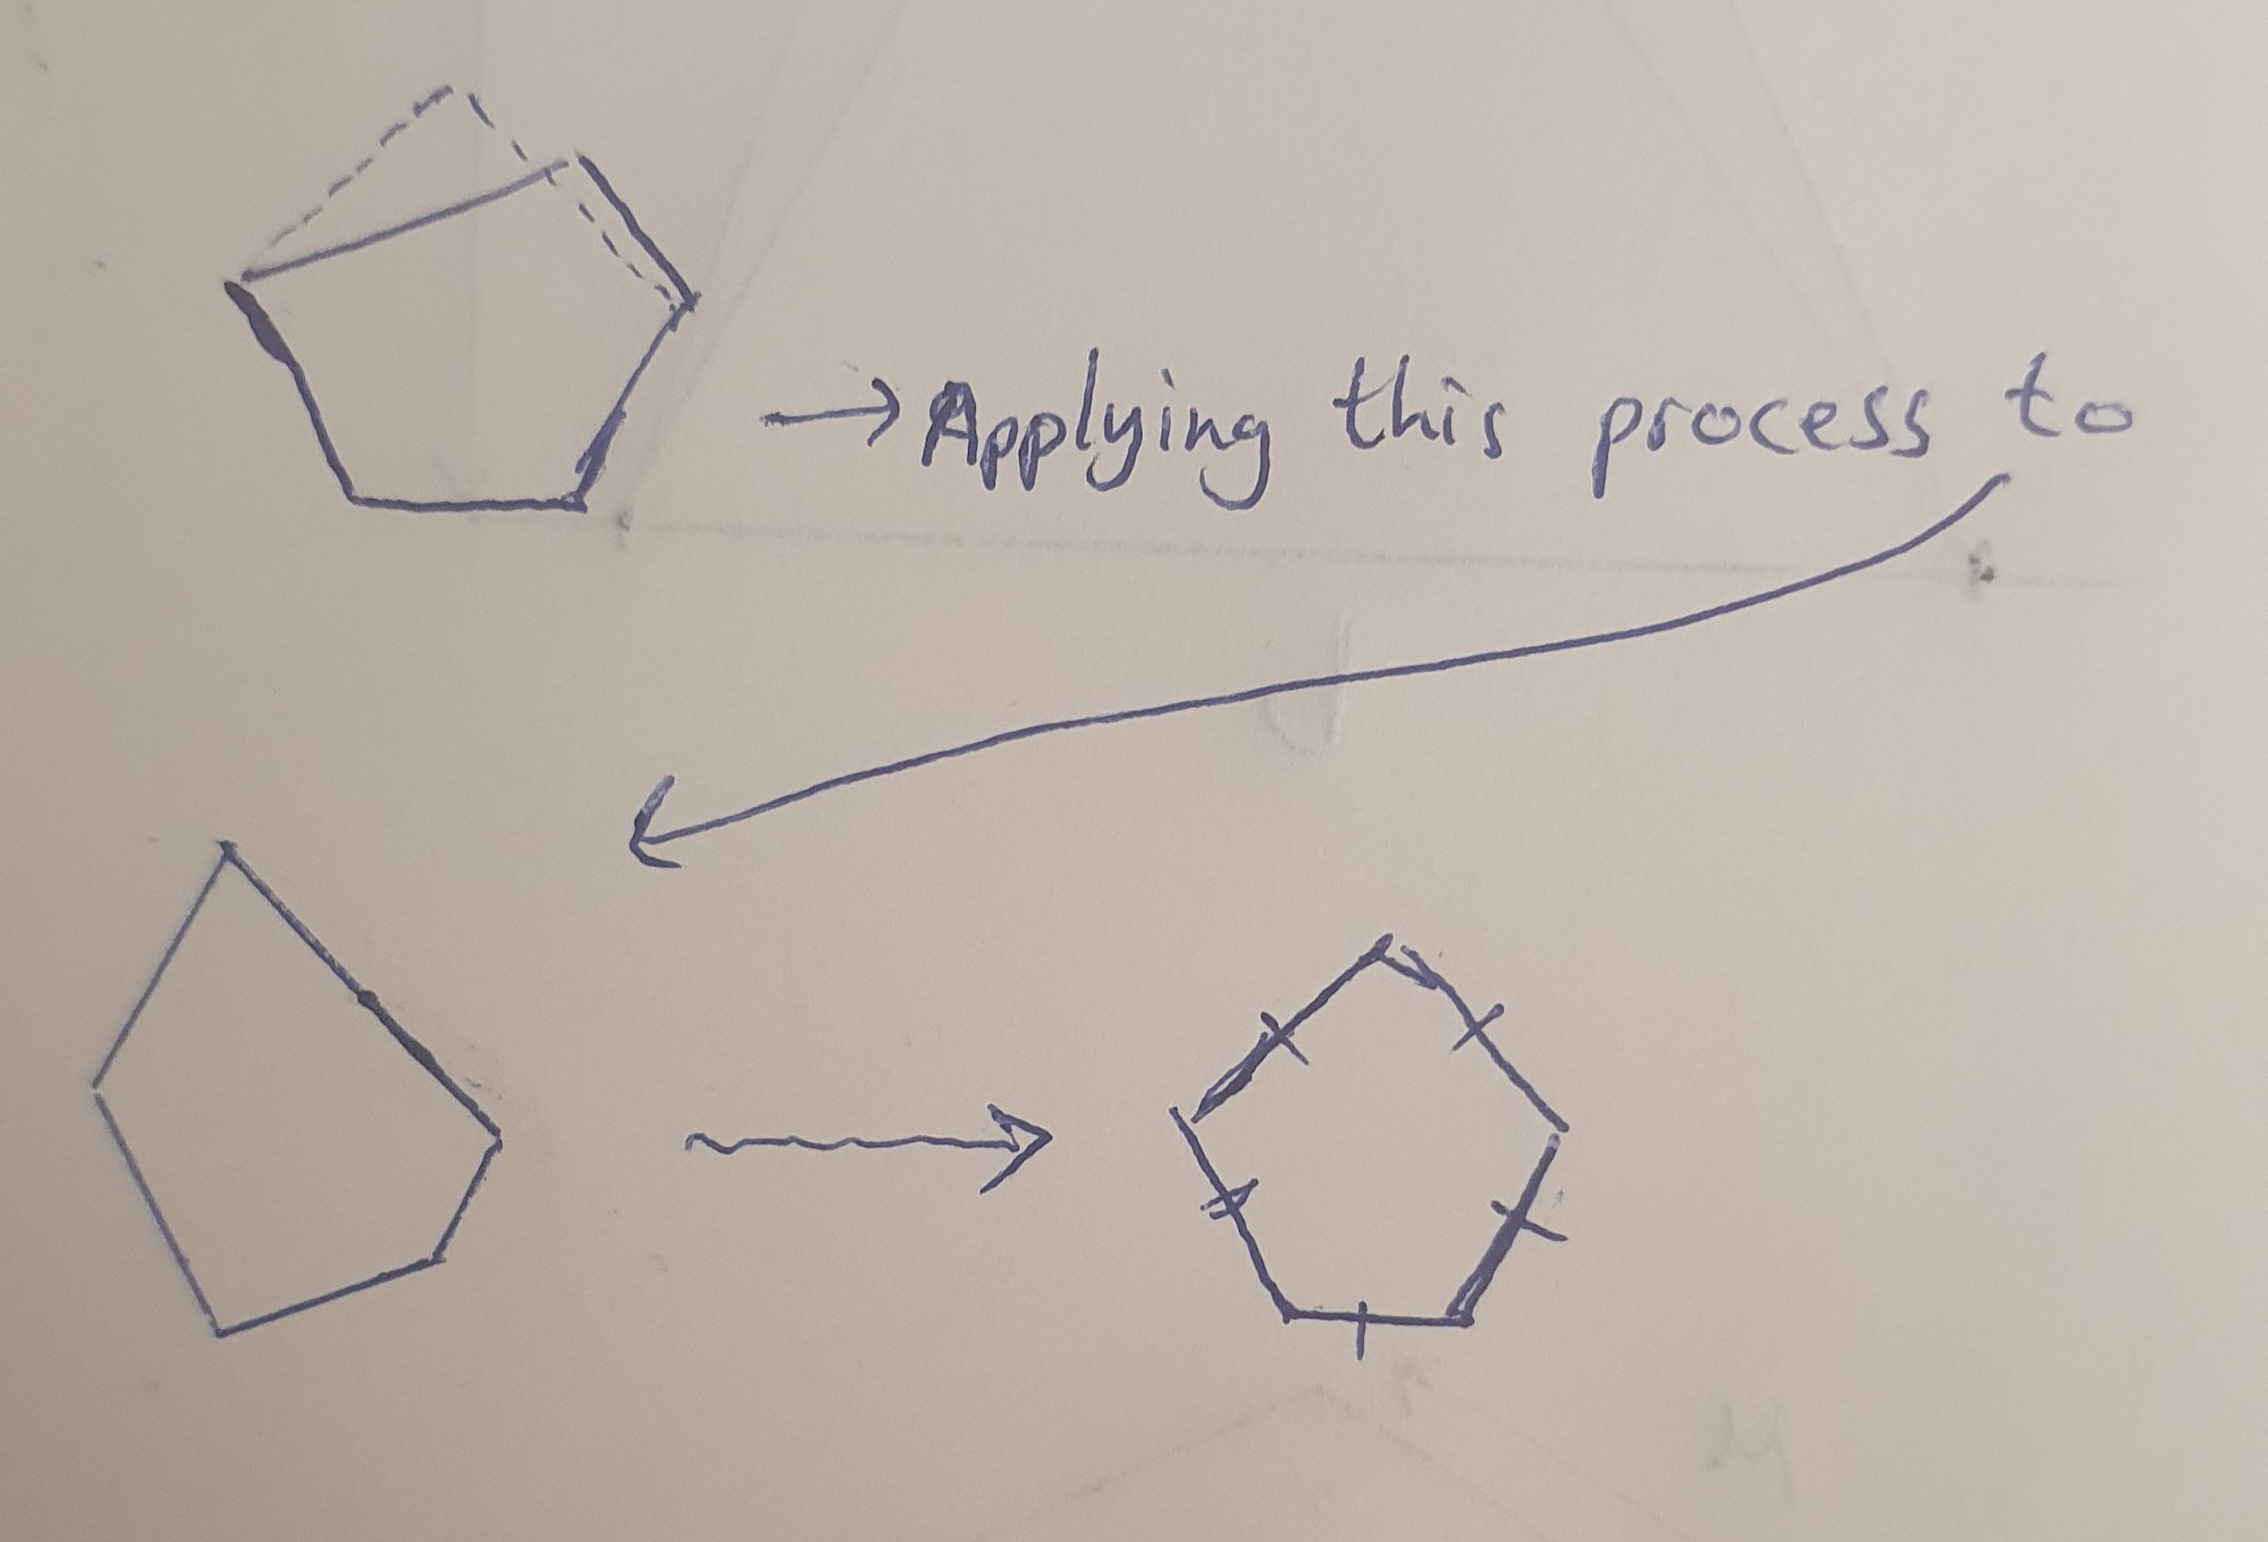 → Applying this process to